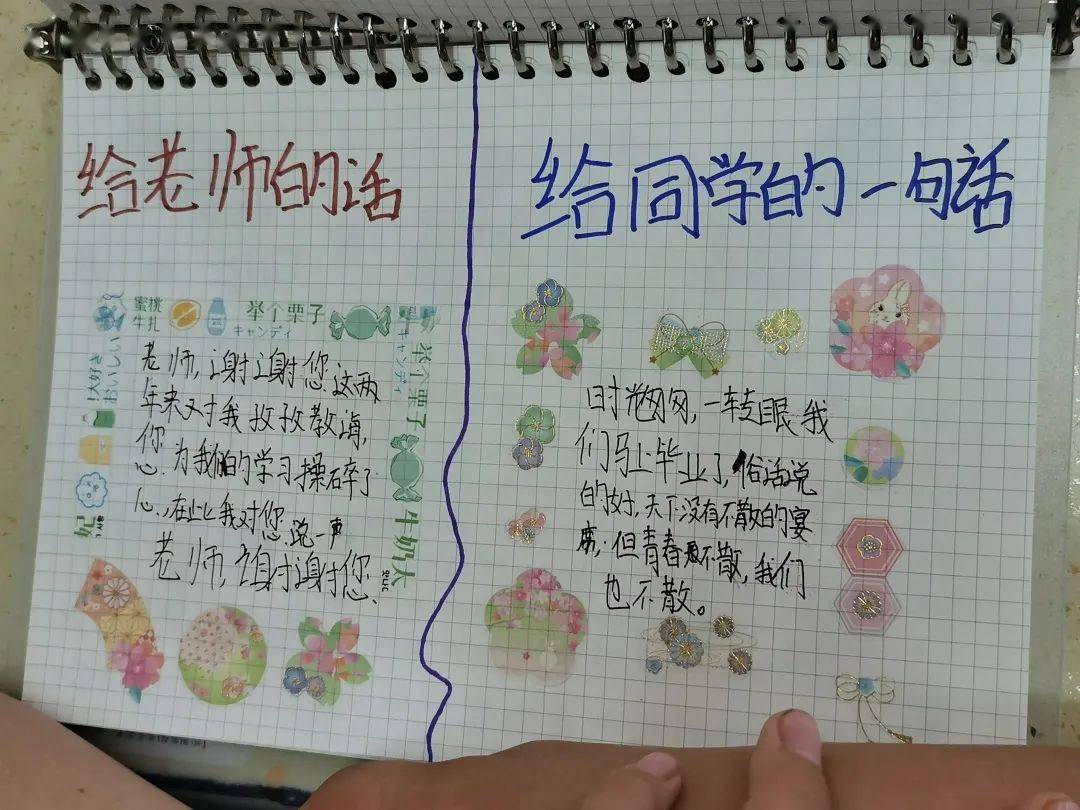 给老师的话
蜜桃
牛扎
举个栗子
キャンディ
老师,谢谢您.这两
年来对我孜孜教诲,
您.为我们的学习操碎了
心.,在此我对您.说一声
老师,谢谢您.
举个栗子
キャンディ
牛奶大
大好き
おいしい
给同学的一句话
时光匆匆,一转眼我
们马上毕业了,俗话说
的好,天下没有不散的宴
席,但青春不散,我们
也不散。